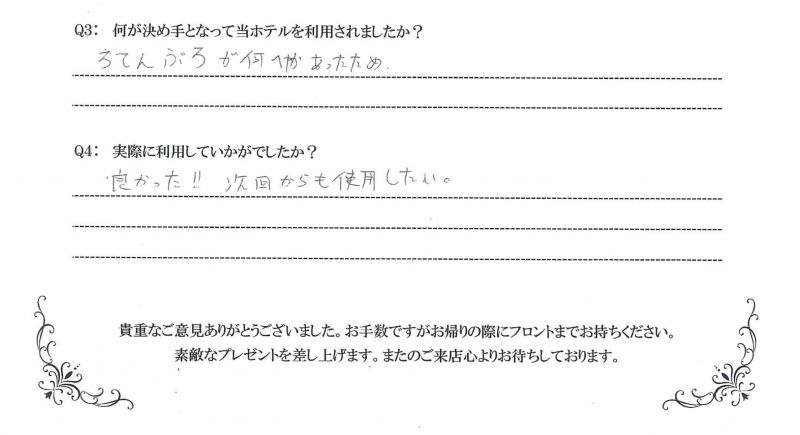 Q3: 何が決め手となって当ホテルを利用されましたか？
ろてんぶろが何へやかあったため.
Q4: 実際に利用していかがでしたか？
良かった!! 次回からも使用したい。
貴重なご意見ありがとうございました。お手数ですがお帰りの際にフロントまでお持ちください。
素敵なプレゼントを差し上げます。またのご来店心よりお待ちしております。